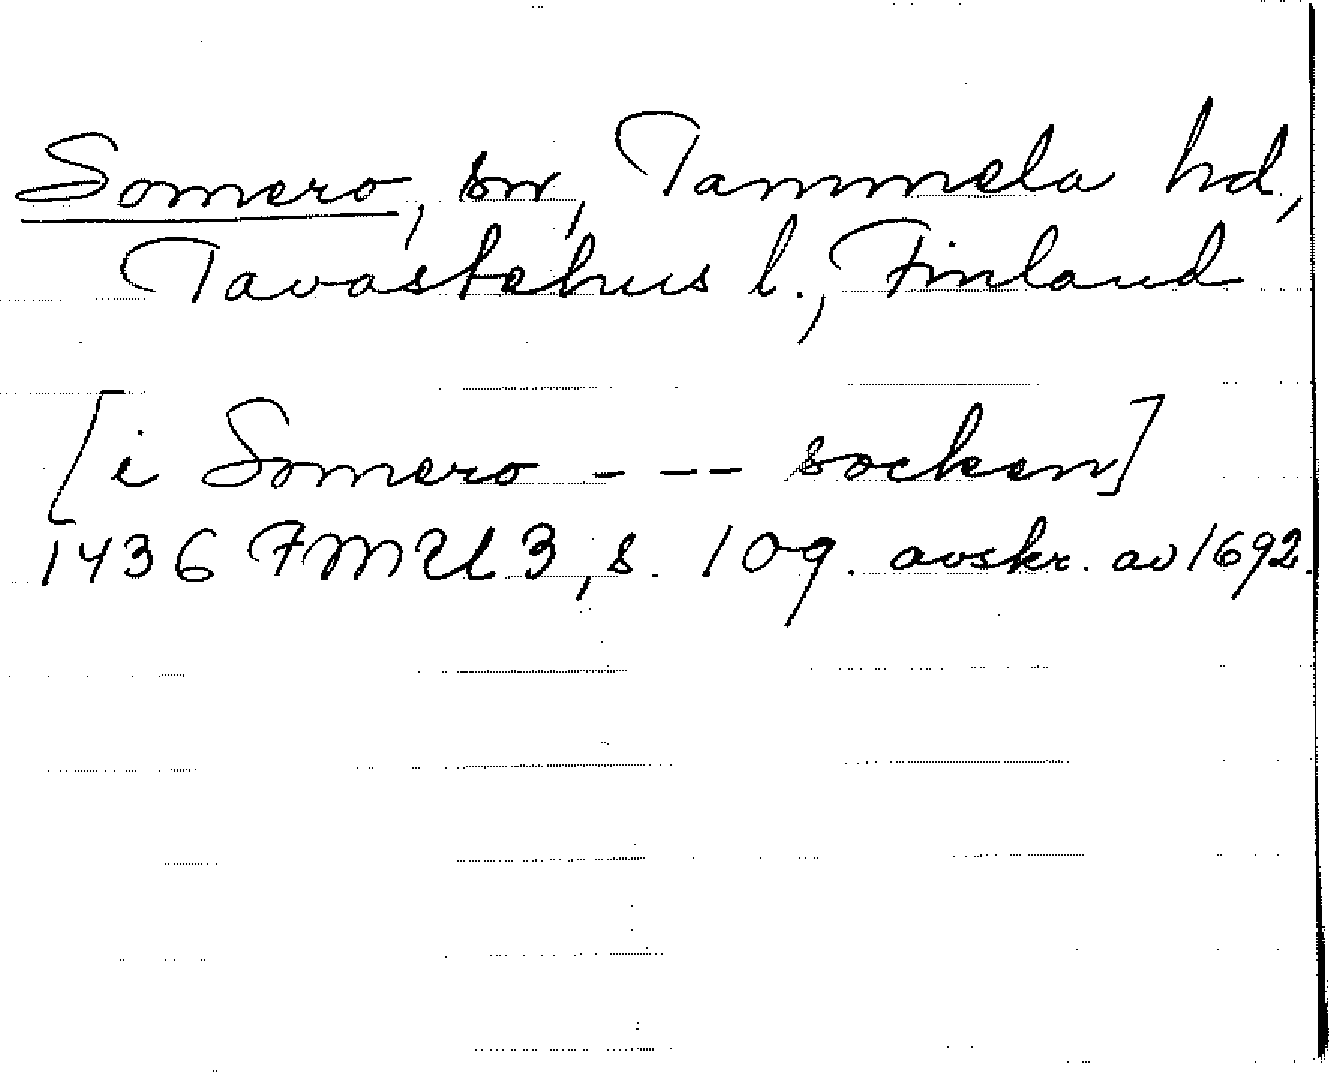 Somero, sn, Tammela hd,
Tavastehus l., Finland
[i Somero - -- socken]
1436 FMU 3, s. 109. avskr. av 1692.